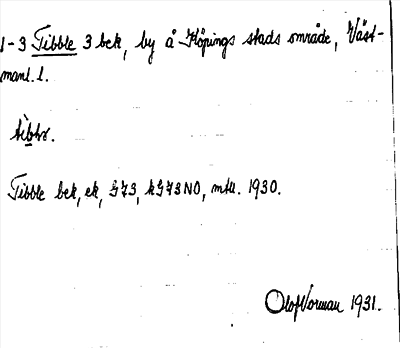 1-3 Tibble 3 bek, by å Köpings stads område, Väst-
manl. l.
tìbbr.
Tibble bek, ek, G73, kG73NO, mtu. 1930.
Olof Norman 1931.